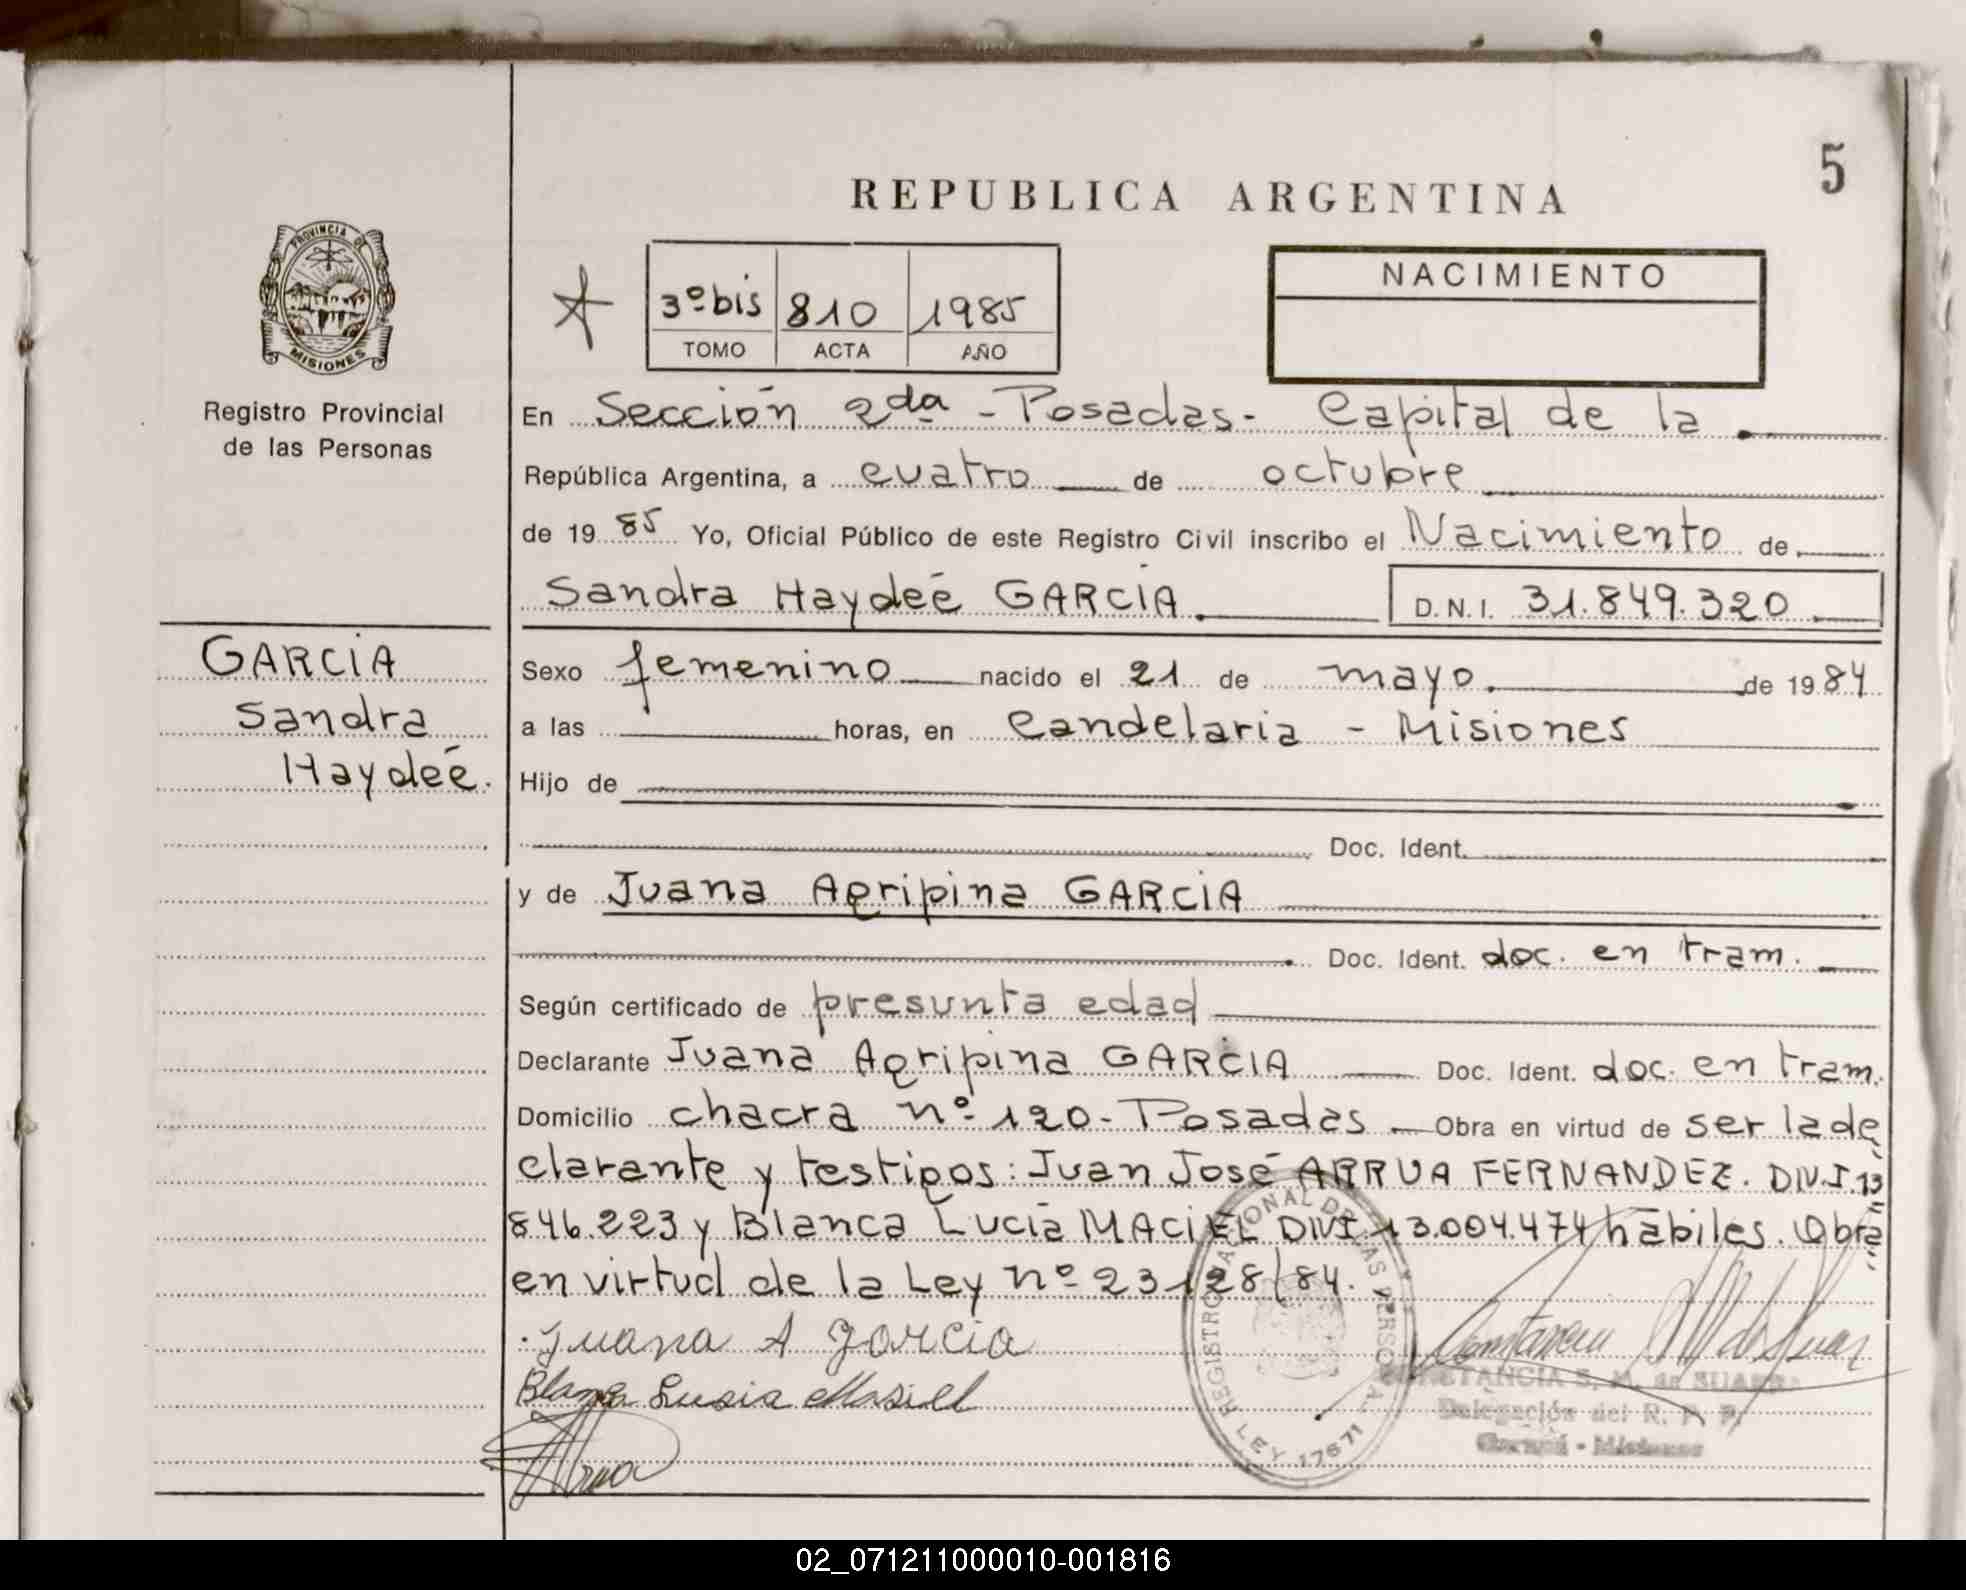 5
REPUBLICA ARGENTINA
PROVINCIA DE
MISIONES
Registro Provincial
de las Personas
3º bis 810 1985
TOMO ACTA AÑO
NACIMIENTO
En Sección 2da - Posadas - Capital de la
República Argentina, a cuatro de octubre
de 19 85 Yo, Oficial Público de este Registro Civil inscribo el Nacimiento de
Sandra Haydeé GARCIA D.N.I. 31.849.320
GARCIA
Sandra
Haydeé.
Sexo femenino nacido el 21 de mayo de 19 84
a las horas, en Candelaria - Misiones
Hijo de
Doc. Ident.
y de Juana Agripina GARCIA
Doc. Ident. doc. en tram.
Según certificado de presunta edad
Declarante Juana Agripina GARCIA Doc. Ident. doc. en tram.
Domicilio chacra nº 120 - Posadas Obra en virtud de ser la de
clarante y testigos: Juan José ARRUA FERNANDEZ. DNI. 13
846.223 y Blanca Lucía MACIEL DNI 13.004.474 hábiles. Obra
en virtud de la Ley nº 23128/84.
Juana A Garcia
Blanca Lusia Masiel
Arrua
REGISTRO NACIONAL DE LAS PERSONAS
LEY 17671
CONSTANCIA S. M. de SUAREZ
Delegación del R. P. P.
Misiones
02_071211000010-001816